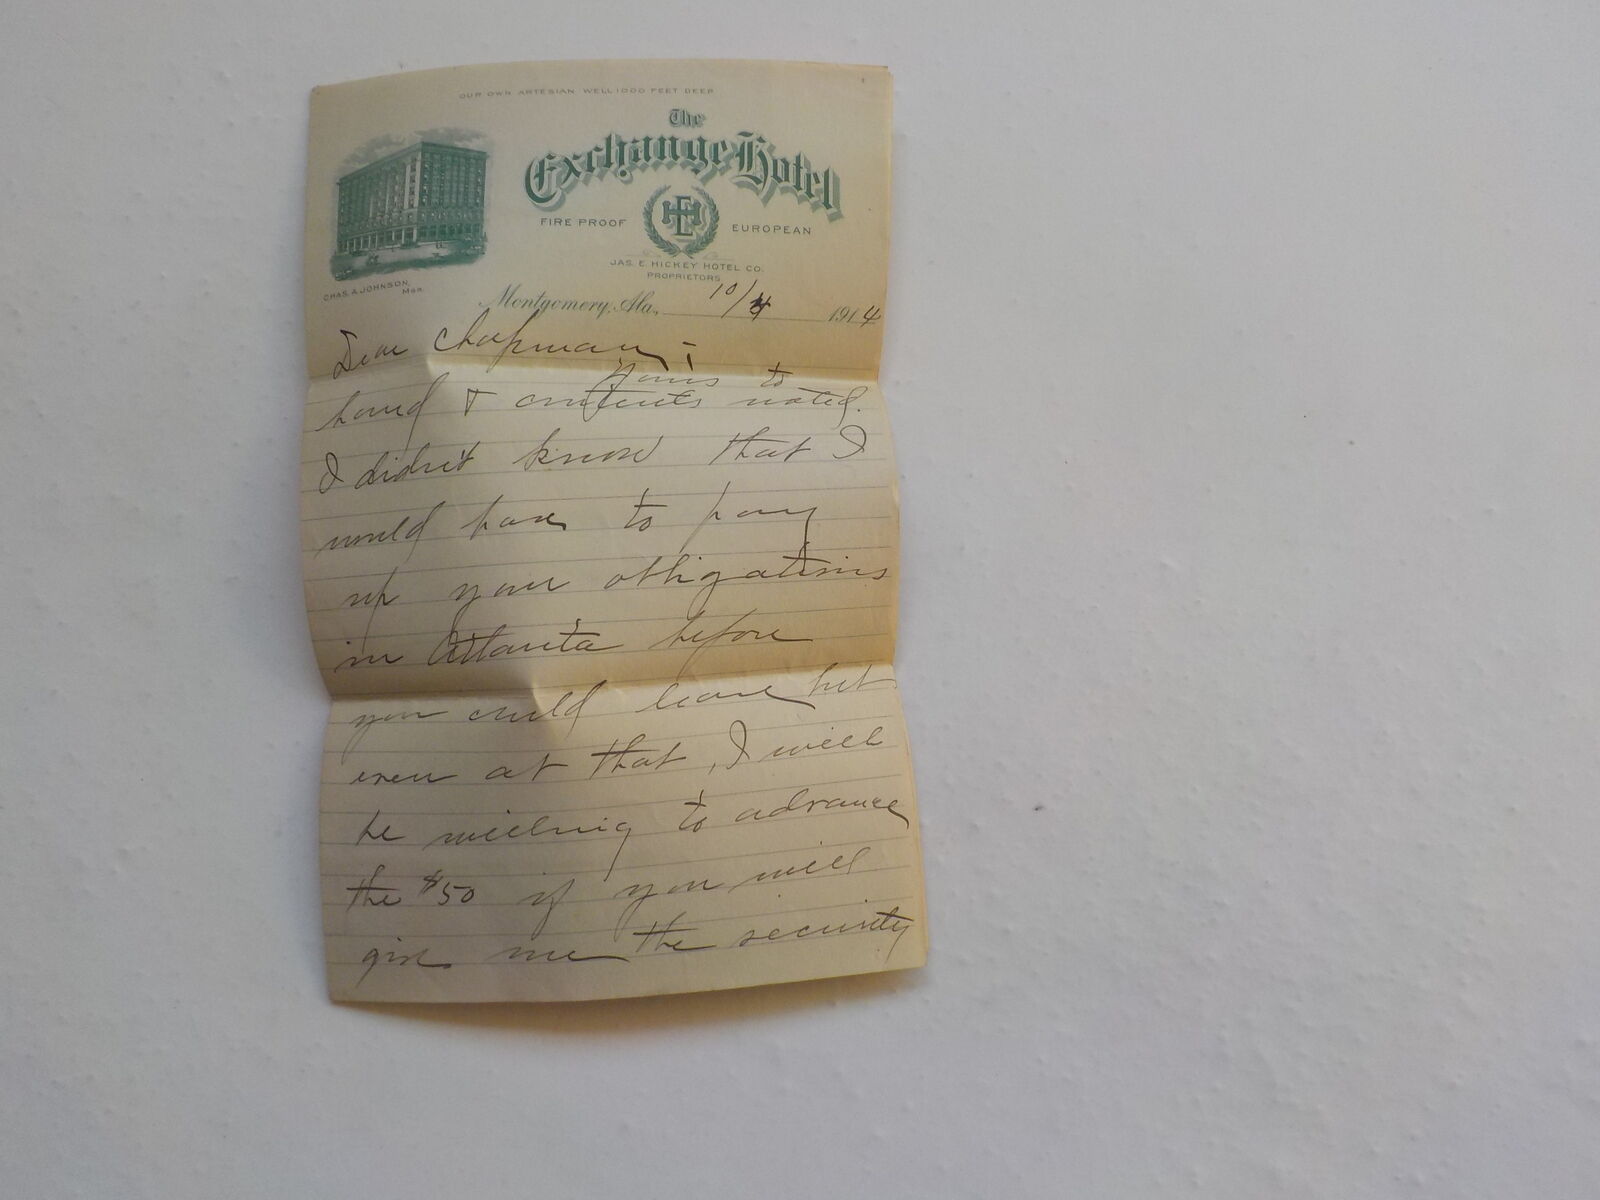 OUR OWN ARTESIAN WELL 1000 FEET DEEP
The
Exchange Hotel
FIRE PROOF EUROPEAN
JAS. E. HICKEY HOTEL CO.
PROPRIETORS
CHAS. A. JOHNSON,
MGR.
Montgomery, Ala., 10/4 1914
Dear Chapman,-
Yours to
hand & contents noted.
I didn't know that I
would have to pay
up your obligations
in Atlanta before
you could leave but
even at that, I will
be willing to advance
the $50 if you will
give me the security